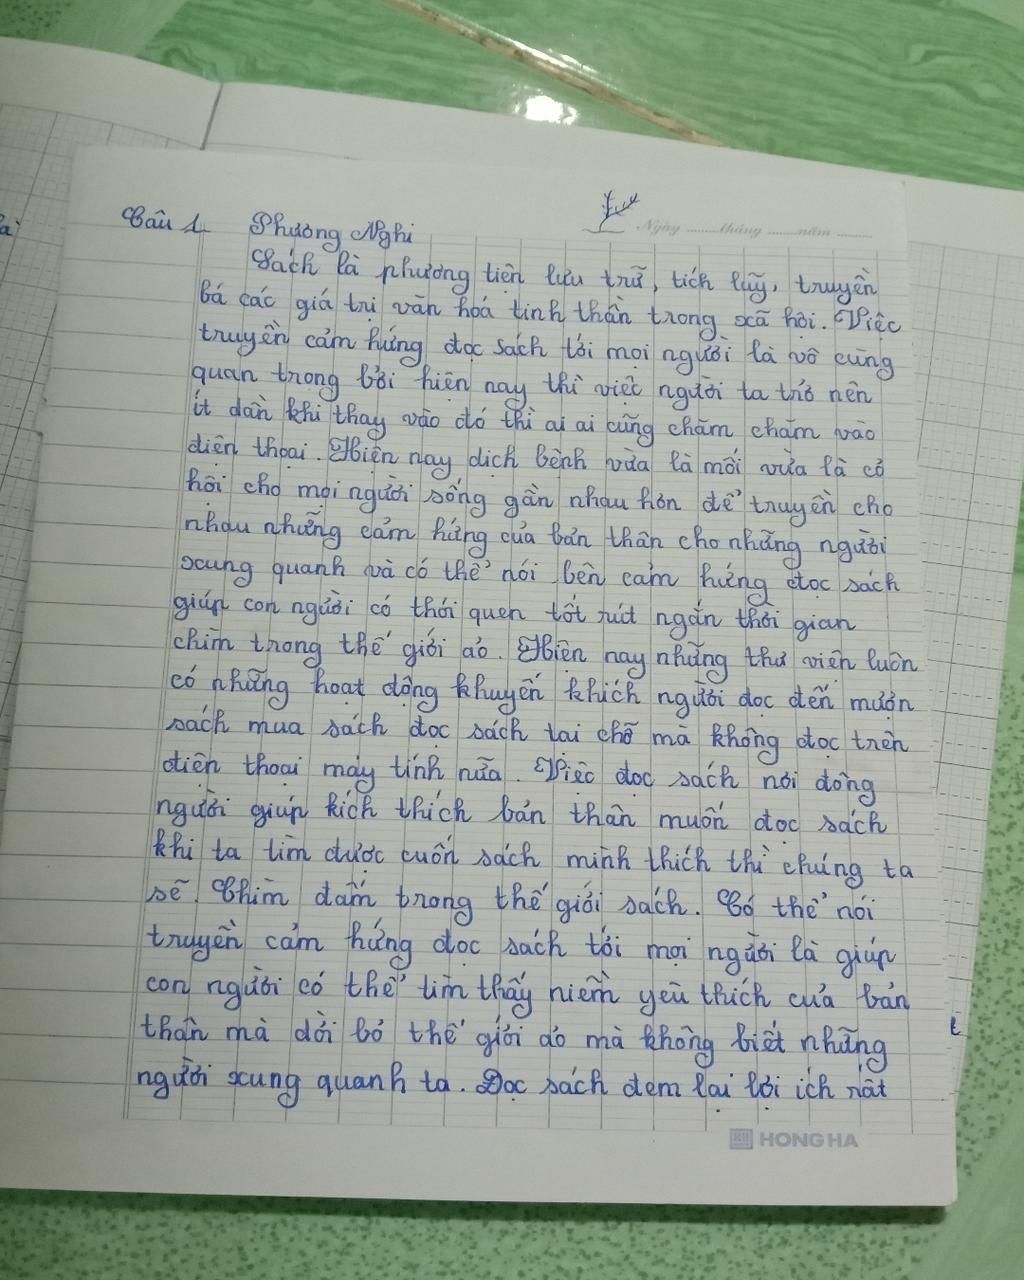 Câu 1. Phương Nghi
Ngày ........ tháng ........ năm ........
Sách là phương tiện lưu trữ, tích lũy, truyền
bá các giá trị văn hóa tinh thần trong xã hội. Việc
truyền cảm hứng đọc sách tới mọi người là vô cùng
quan trọng bởi hiện nay thì việc người ta trở nên
ít dần khi thay vào đó thì ai ai cũng chăm chăm vào
điện thoại. Hiện nay dịch bệnh vừa là mối vừa là cơ
hội cho mọi người sống gần nhau hơn để truyền cho
nhau những cảm hứng của bản thân cho những người
xung quanh và có thể nói bên cảm hứng đọc sách
giúp con người có thói quen tốt rút ngắn thời gian
chìm trong thế giới ảo. Hiện nay những thư viện luôn
có những hoạt động khuyến khích người đọc đến mượn
sách mua sách đọc sách tại chỗ mà không đọc trên
điện thoại máy tính nữa. Việc đọc sách nơi đông
người giúp kích thích bản thân muốn đọc sách
khi ta tìm được cuốn sách mình thích thì chúng ta
sẽ Chìm đắm trong thế giới sách. Có thể nói
truyền cảm hứng đọc sách tới mọi người là giúp
con người có thể tìm thấy niềm yêu thích của bản
thân mà dời bỏ thế giới ảo mà không biết những
người xung quanh ta. Đọc sách đem lại lợi ích rất
HONG HA